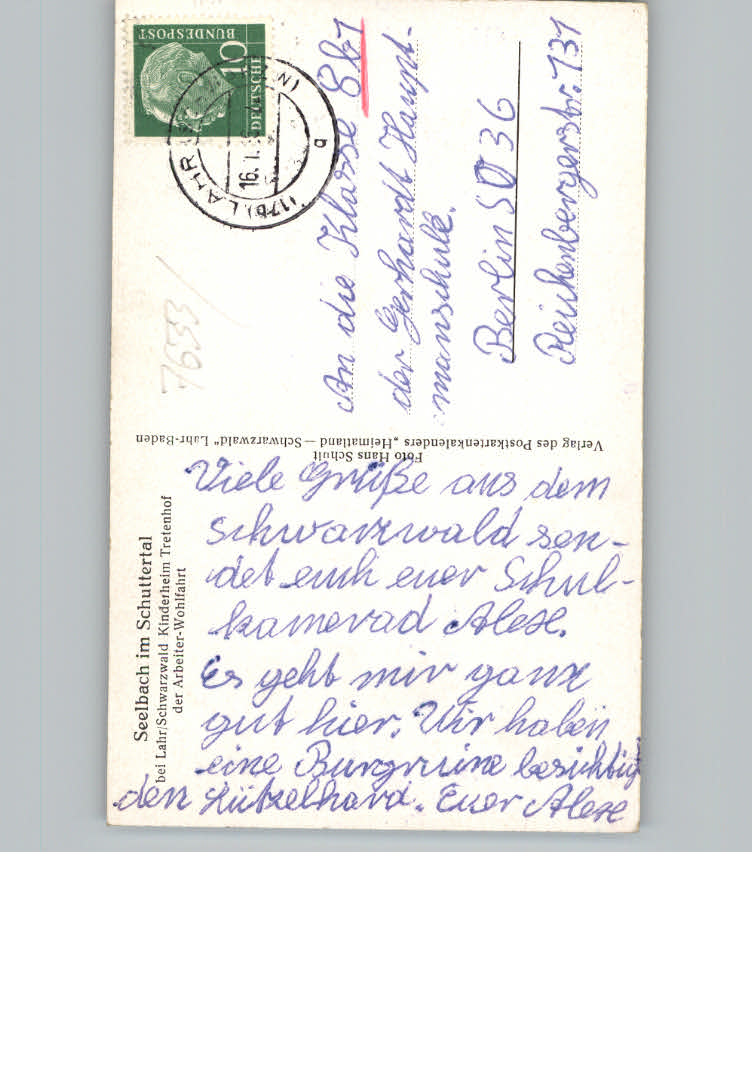 Seelbach im Schuttertal
bei Lahr/Schwarzwald Kinderheim Tretenhof
der Arbeiter-Wohlfahrt
Viele Grüße aus dem
Schwarzwald sen-
det euch euer Schul-
kamerad Alex.
Es geht mir ganz
gut hier. Wir haben
eine Burgruine besichtig
den Lützelhard. Euer Alex
Foto Hans Schult
Verlag des Postkartenkalenders „Heimatland — Schwarzwald" Lahr-Baden
DEUTSCHE
BUNDESPOST
10
(17b) LAHR
16. 1.
a
An die Klasse 8b1
der Gerhardt Haupt-
manschule.
Berlin SO 36
Reichenbergerstr. 131
7633